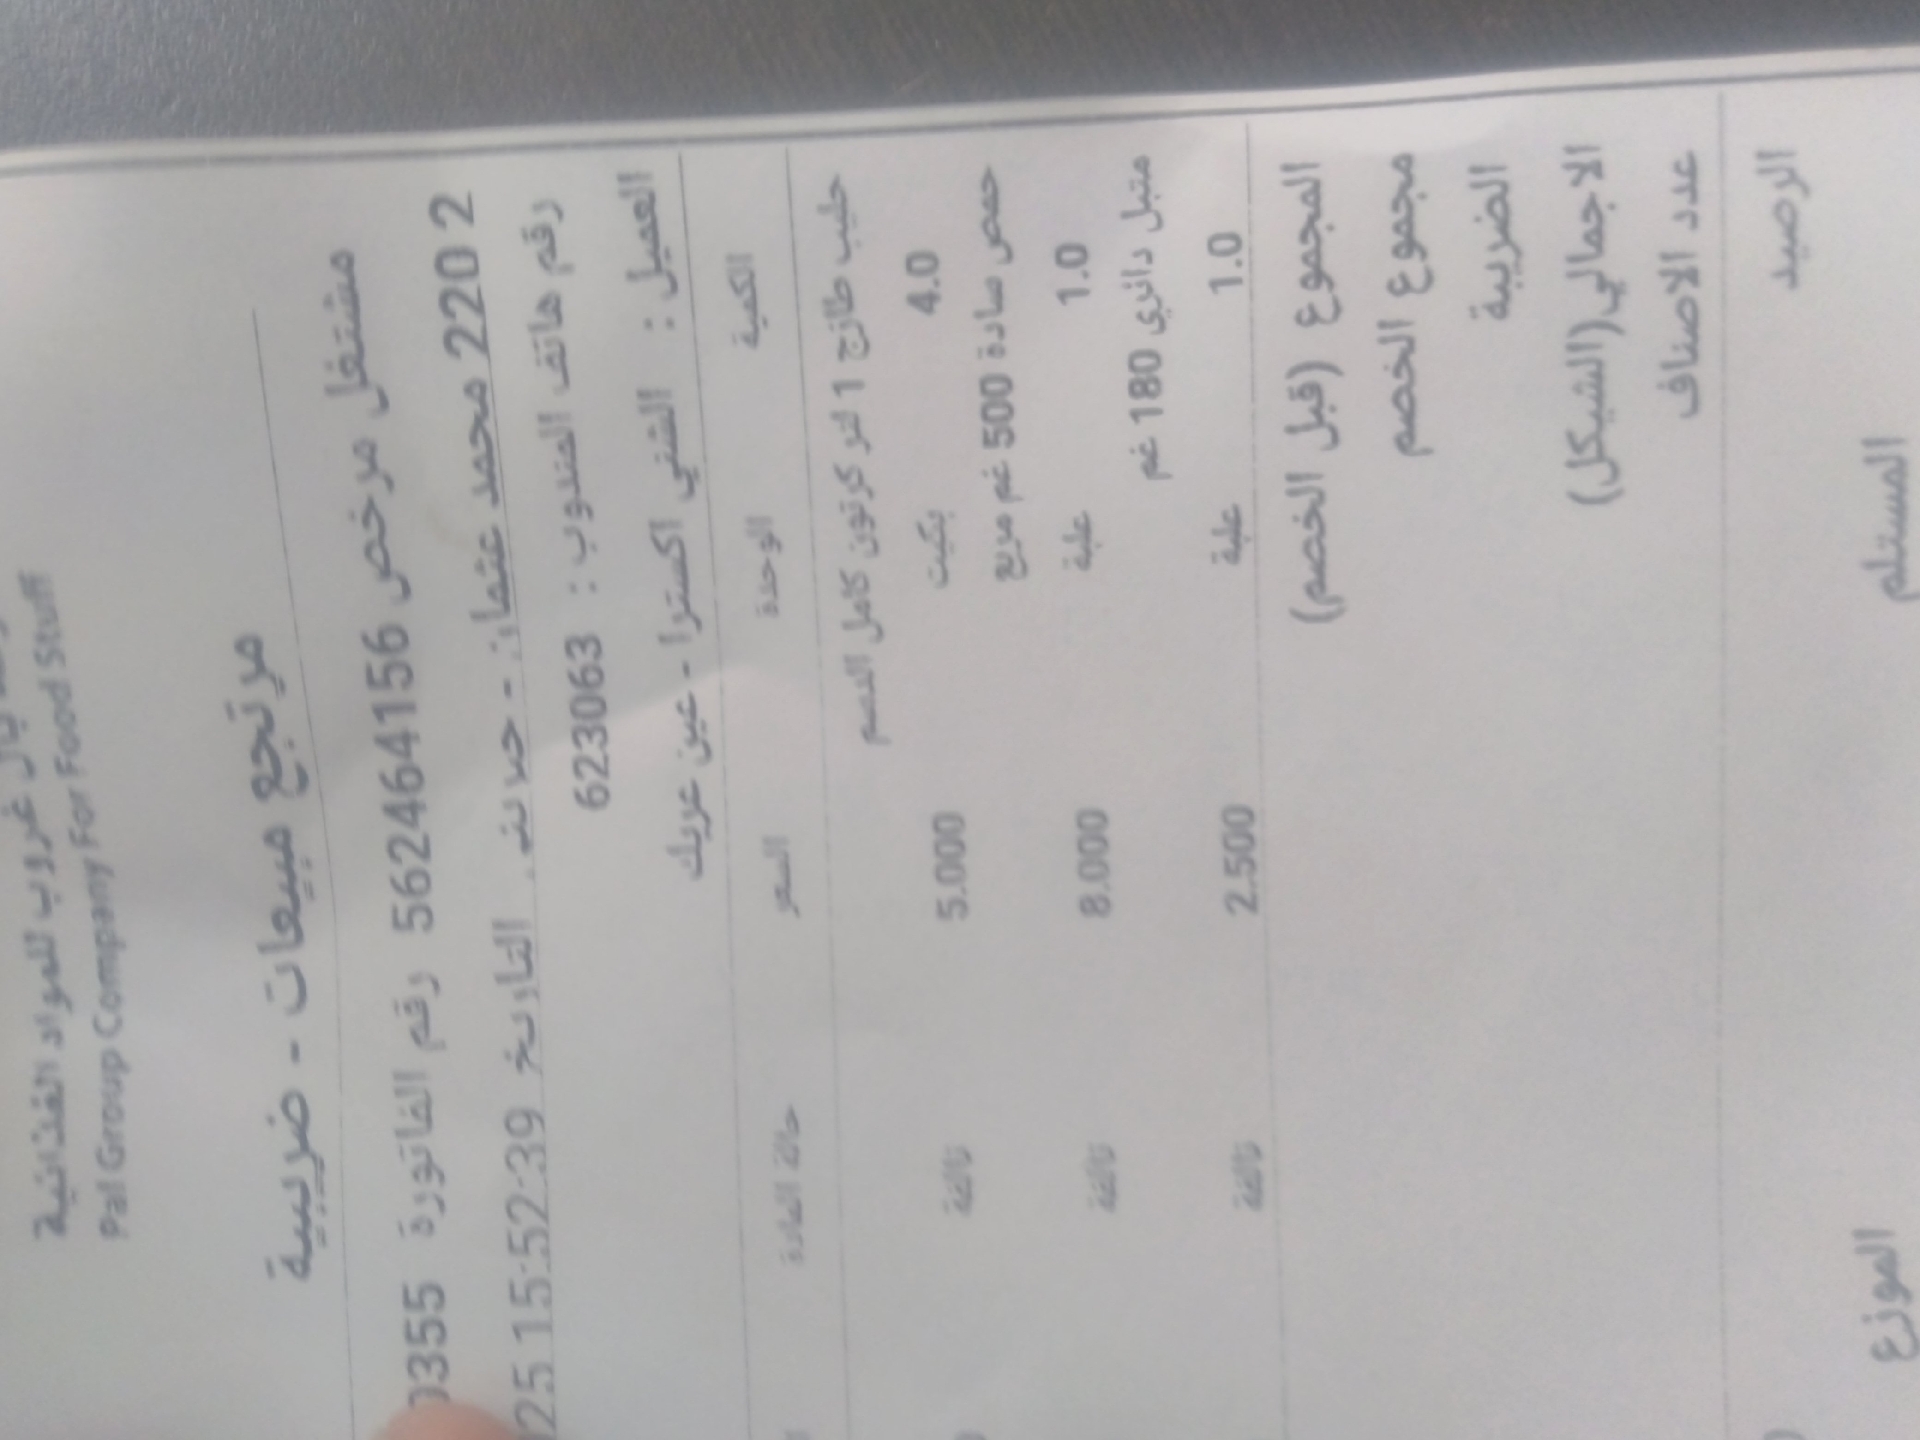 بال غروب للمواد الغذائية
Pal Group Company For Food Stuff
مرتجع مبيعات - ضريبية
مشتغل مرخص 562464156 رقم الفاتورة 0355
220 2 محمد عثمان - حلاند. التاريخ 25 15:52:39
رقم هاتف المندوب : 6223063
العميل : الشني اكسترا - عين عريك
الكمية الوحدة السعر حالة المادة
حليب طازج 1 لتر كرتون كامل الدسم
4.0 بكيت 5.000 تالفة
حمص سادة 500 غم مربع
1.0 علبة 8.000 تالفة
متبل دائري 180 غم
1.0 علبة 2.500 تالفة
المجموع (قبل الخصم)
مجموع الخصم
الضريبة
الاجمالي(الشيكل)
عدد الاصناف
الرصيد
المستلم الموزع